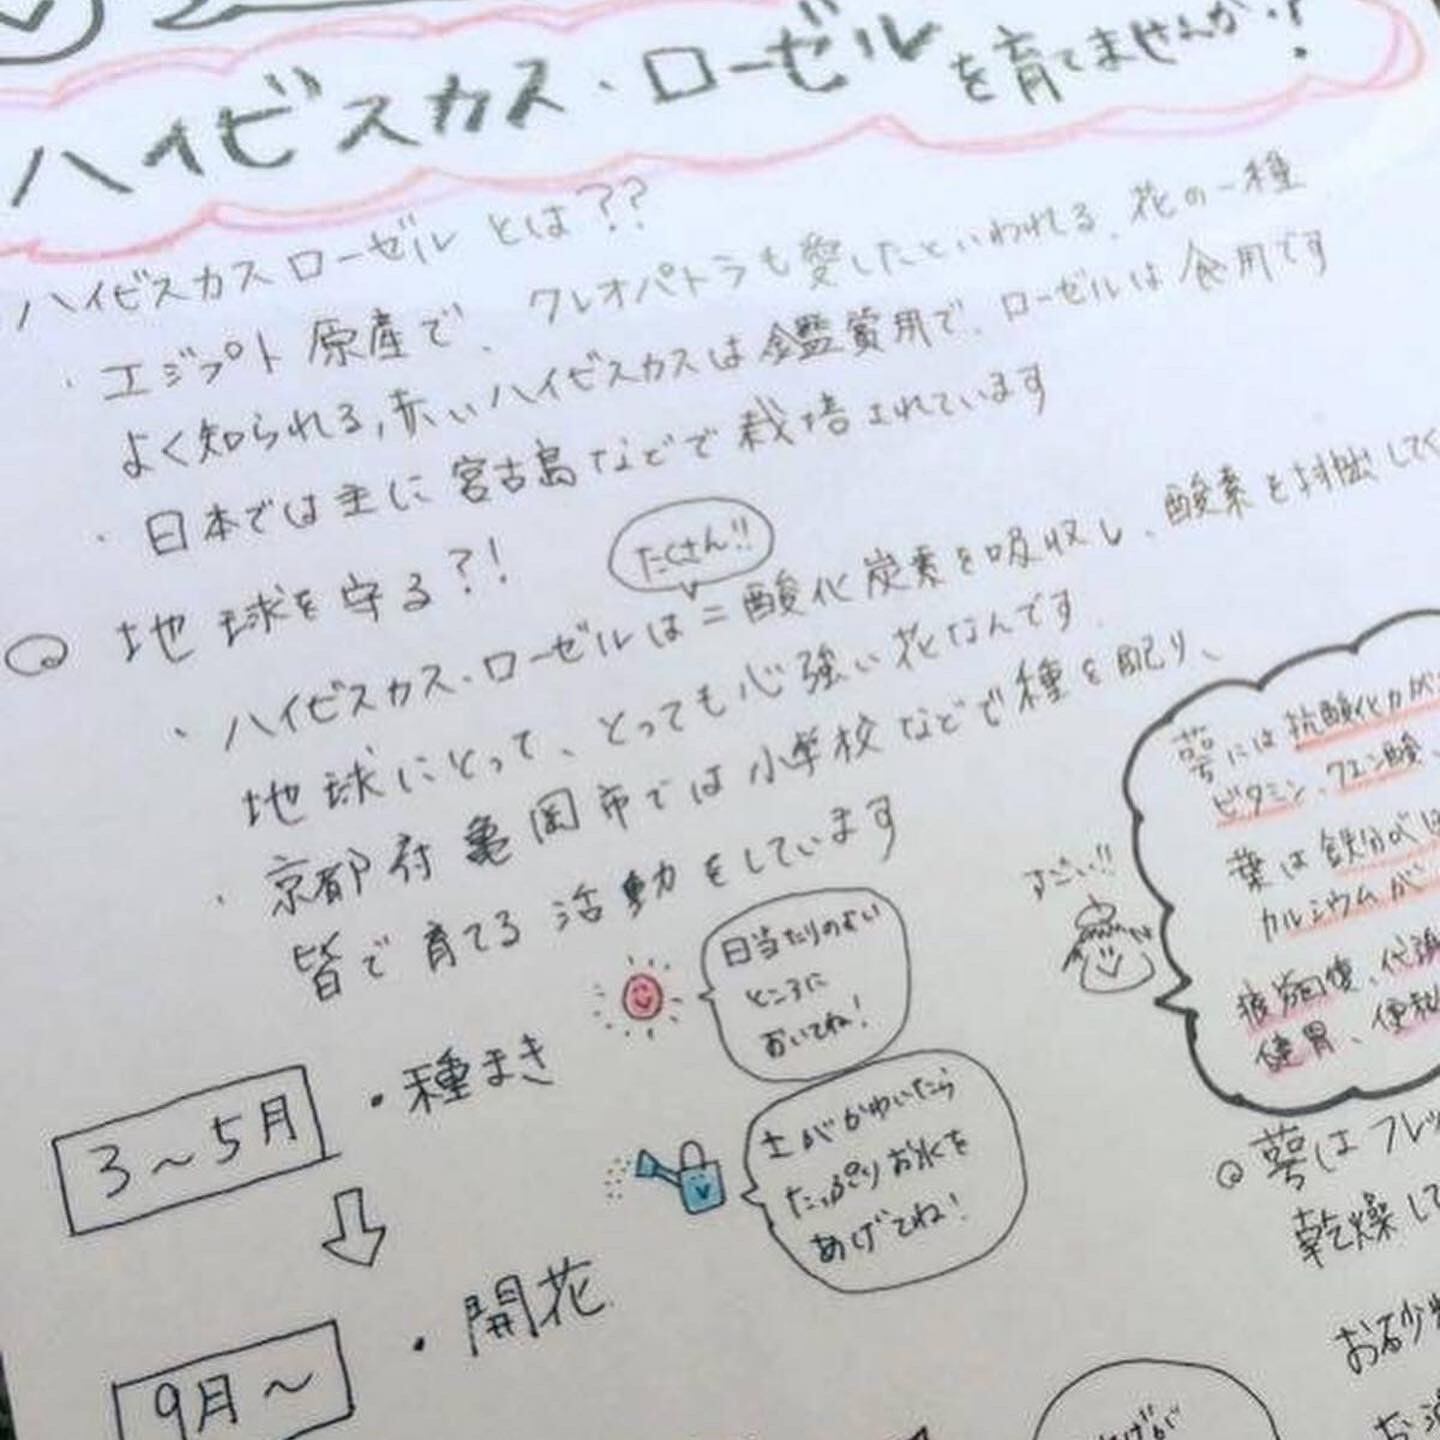 ハイビスカス・ローゼルを育てませんか?
ハイビスカスローゼルとは??
・エジプト原産で、クレオパトラも愛したといわれる、花の一種
よく知られる、赤いハイビスカスは鑑賞用で、ローゼルは食用です
・日本では主に宮古島などで栽培されています
地球を守る?!
たくさん!!
・ハイビスカス・ローゼルは二酸化炭素を吸収し、酸素を排出してく
地球にとって、とっても心強い花なんです
・京都府亀岡市では小学校などで種を配り、
皆で育てる活動をしています
3〜5月
・種まき
日当たりのよい
ところに
おいてね!
土がかわいたら
たっぷりお水を
あげてね!
9月〜
・開花
すごい!!
萼には抗酸化力が
ビタミン、クエン酸、
葉は鉄分が
カルシウムが
疲労回復、代謝
健胃、便秘
萼はフレッ
乾燥して
お砂